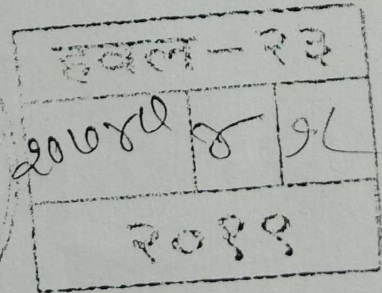 हवल - २३
२०७४७ ४ १८
२०११